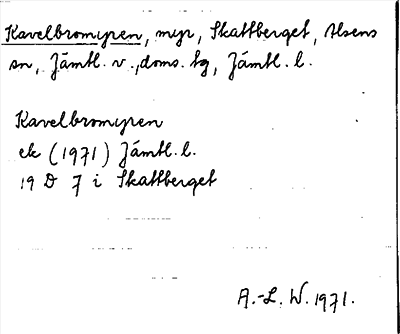 Kavelbromyren, myr, Skattberget, Alsens
sn, Jämtl. v., doms. tg, Jämtl. l.
Kavelbromyren
ek (1971) Jämtl. l.
19 D 7 i Skattberget
A.-L. W. 1971.